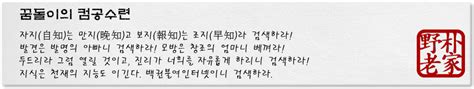 꿈돌이의 컴공수련
자지(自知)는 만지(晩知)고 보지(報知)는 조지(早知)라 검색하라!
발견은 발명의 아빠니 검색하라! 모방은 창조의 엄마니 베껴라!
두드리라 그럼 열릴 것이고, 진리가 너희를 자유롭게 하리니 검색하라!
지식은 천재의 지능도 이긴다. 백권불여인터넷이니 검색하라.
朴家野老